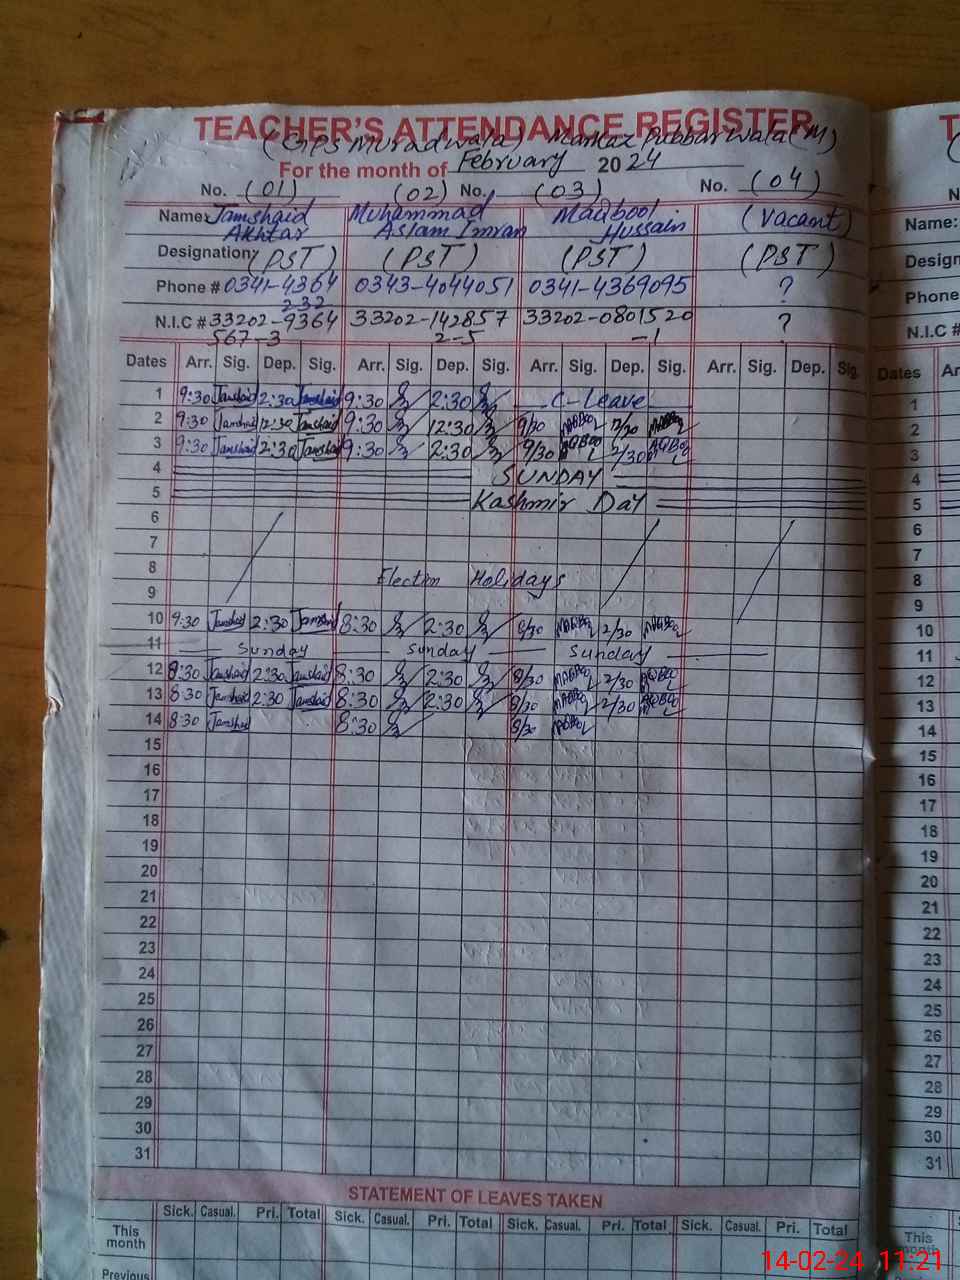 TEACHER'S ATTENDANCE REGISTER
(GPS Muradwala) Markaz Pubbarwala (M)
For the month of February 2024
No. (01) (02) No. (03) No. (04)
Name: Jamshaid Akhtar Muhammad Aslam Imran Maqbool Hussain (Vacant)
Designation: (PST) (PST) (PST) (PST)
Phone # 0341-4364232 0343-4044051 0341-4369095 ?
N.I.C # 33202-9364567-3 33202-1428572-5 33202-0801520-1 ?
Dates Arr. Sig. Dep. Sig. Arr. Sig. Dep. Sig. Arr. Sig. Dep. Sig. Arr. Sig. Dep. Sig.
1 9:30 Jamshaid 2:30 Jamshaid 9:30 2:30 C-Leave
2 9:30 Jamshaid 12:30 Jamshaid 9:30 12:30 9/30 12/30
3 9:30 Jamshaid 2:30 Jamshaid 9:30 2:30 9/30 2/30
4 SUNDAY
5 Kashmir Day
6
7
8 Election Holidays
9
10 9:30 Jamshaid 2:30 Jamshaid 8:30 2:30 8/30 2/30
11 Sunday Sunday Sunday
12 8:30 Jamshaid 2:30 Jamshaid 8:30 2:30 8/30 2/30
13 8:30 Jamshaid 2:30 Jamshaid 8:30 2:30 8/30 2/30
14 8:30 Jamshaid 8:30 8/30
15
16
17
18
19
20
21
22
23
24
25
26
27
28
29
30
31
STATEMENT OF LEAVES TAKEN
Sick. Casual. Pri. Total Sick. Casual. Pri. Total Sick. Casual. Pri. Total Sick. Casual. Pri. Total
This month
Previous
T
Name:
Design
Phone
N.I.C #
Dates Ar
1
2
3
4
5
6
7
8
9
10
11
12
13
14
15
16
17
18
19
20
21
22
23
24
25
26
27
28
29
30
31
This month
14-02-24 11:21